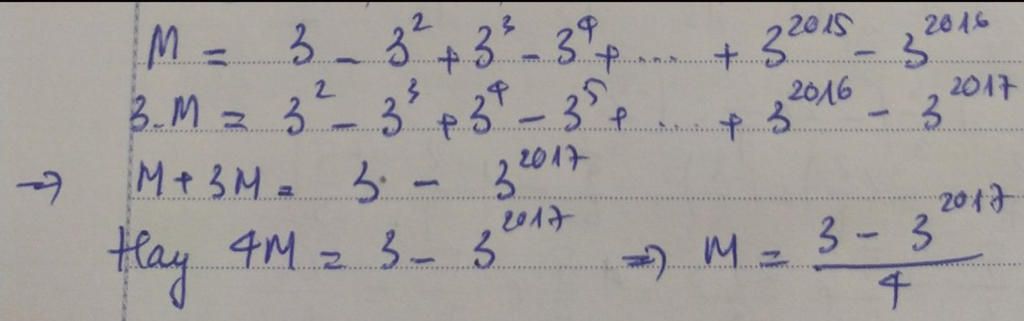 M = 3 - 3² + 3³ - 3⁴ + ... + 3²⁰¹⁵ - 3²⁰¹⁶
3.M = 3² - 3³ + 3⁴ - 3⁵ + ... + 3²⁰¹⁶ - 3²⁰¹⁷
=> M + 3M = 3 - 3²⁰¹⁷
Hay 4M = 3 - 3²⁰¹⁷ => M = (3 - 3²⁰¹⁷)/4